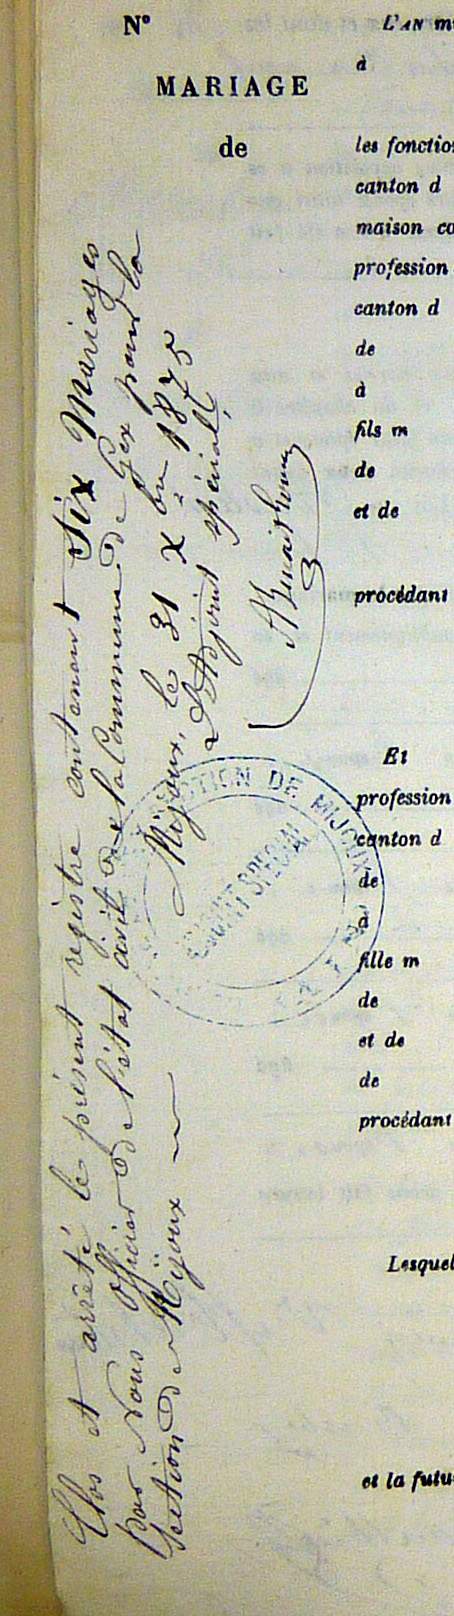 N°
MARIAGE
de
Clos et arrêté le présent registre contenant Six Mariages
par Nous officier de l'état civil de la Commune de Gex pour la
section de Mijoux
Mijoux, le 31 Xbre 1875
L'Adjoint spécial,
SECTION DE MIJOUX
ADJOINT SPECIAL
L'AN m
à
les fonctio
canton d
maison co
profession
canton d
de
à
fils m
de
et de
procédant
Et
profession
canton d
de
à
fille m
de
et de
de
procédant
Lesquel
et la futu